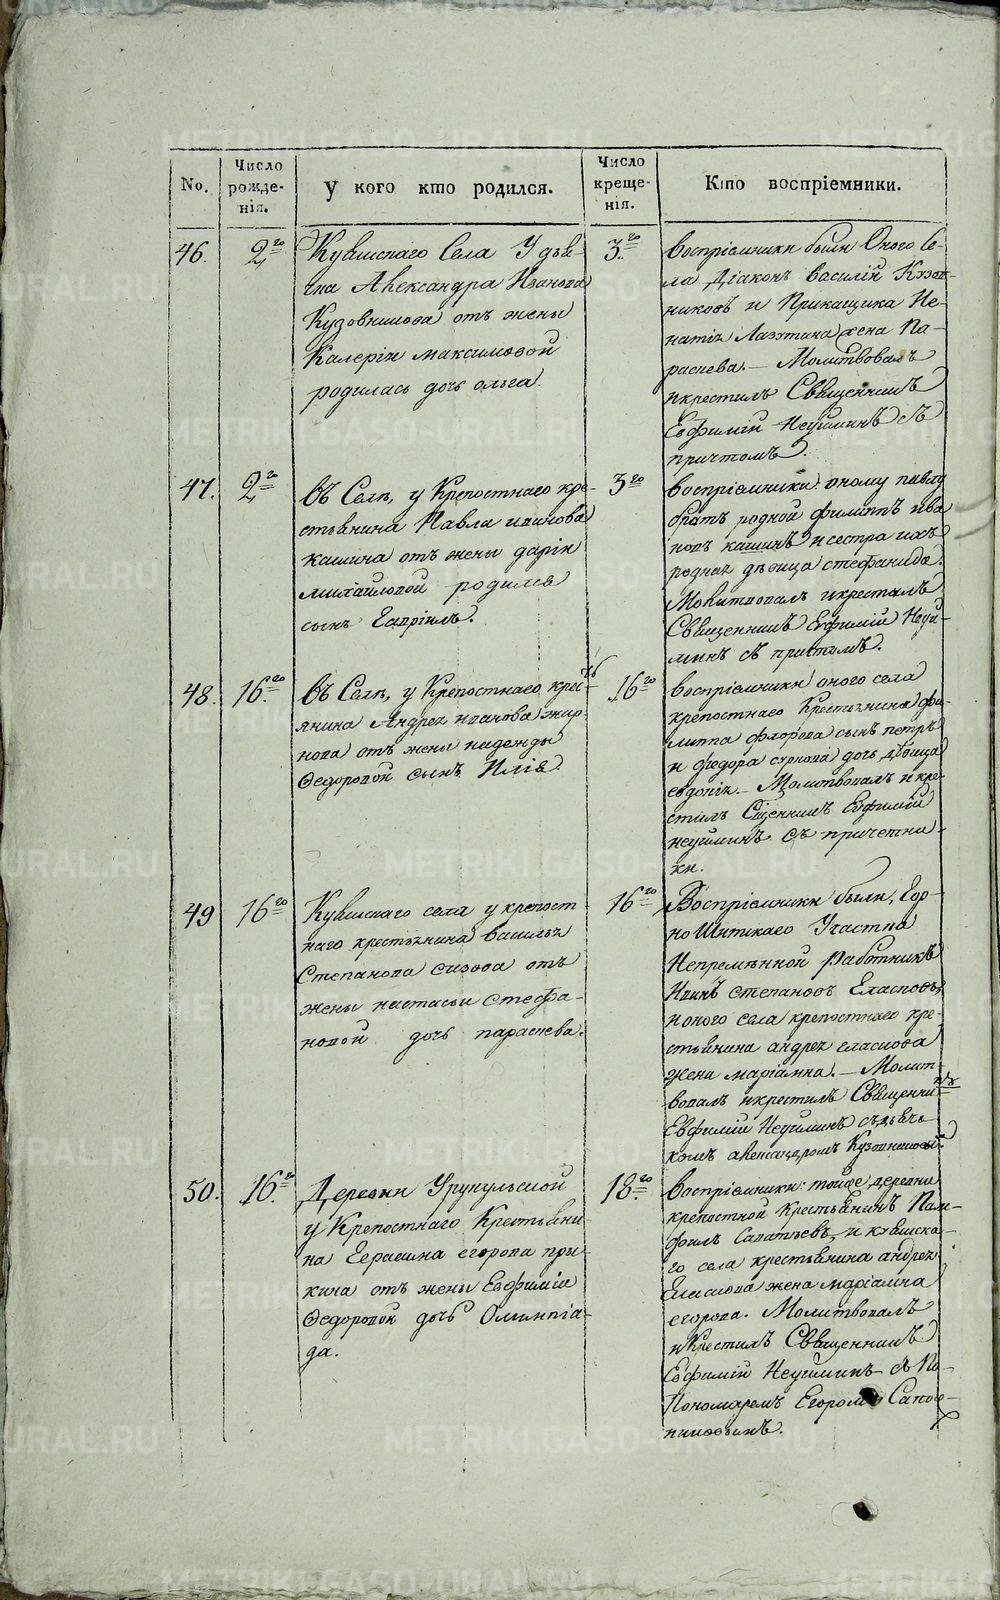 No.
Число рожде-нія.
У кого кто родился.
Число креще-нія.
Кто воспріемники.
46.
2го
Кувшскаго Села У дья-
чка Александра Иванова
Кузовникова отъ жены
Калеріи максимовой
родилась дочь ольга.
3.го
воспріемники были Оного Се-
ла Діаконъ василій Кузов-
никовъ и Прикащика
жена Па-
раскева. — Молитвовалъ
и крестилъ Священникъ
Евфимій Неуйминъ съ
причтомъ.
47.
2го
въ Селѣ, у Крепостнаго кре-
стьянина Павла иванова
кашина отъ жены даріи
михайловой родился
сынъ Гавріилъ.
3го
воспріемники: оному павлу
братъ родной филиппъ ива
новъ кашинъ и сестра ихъ
родная дѣвица стефанида.
Молитвовалъ и крестилъ
Священникъ Евфимій Неуй-
минъ съ притомъ.
48.
16.го
въ Селѣ, у Крепостнаго крес
янина Андрея иванова
отъ жены надежды
Ѳедоровой сынъ Илія.
16го
воспріемники оного села
крепостнаго Крестьянина фи-
липпа флорова сынъ петръ
и федора суркова дочь дѣвица
евдокія. — Молитвовалъ и кре-
стилъ Сщенникъ Евфимій
неуйминъ съ причетни-
ки.
49
16го
Кувшскаго села у крепост
наго крестьянина василья
Степанова сизова отъ
жены настасьи стефа-
новой дочь параскева.
16го
Воспріемники были, Гор-
но Участка
Непремѣнной работникъ
Иванъ степановъ Власковъ,
и оного села крепостнаго кре-
стьянина андрея власкова
жена маріамна. — Молит-
вовалъ и крестилъ Священни
Евфимій Неуйминъ съ дьяч-
комъ александромъ Кузовниковымъ
50.
16.го
Деревни Урукульской
у Крепостнаго Крестьяни-
на Герасима егорова при-
кина отъ жены Евфиміи
Ѳедоровой дочь Олимпіа-
да.
18.го
воспріемники: тойже деревни
крепостной Крестьянинъ Пам-
филъ Савватѣевъ, и кувшска-
го села крестьянина андрея
Власкова жена маріамна
егорова. Молитвовалъ
и Крестилъ Священникъ
Евфимій Неуйминъ съ По-
Пономаремъ Егоромъ Сапож-
никовымъ.